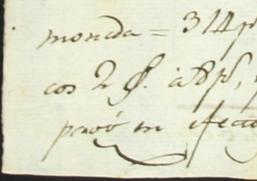 moneda = 314 p
cos 2 f. à 8 ps,
pasó en efec